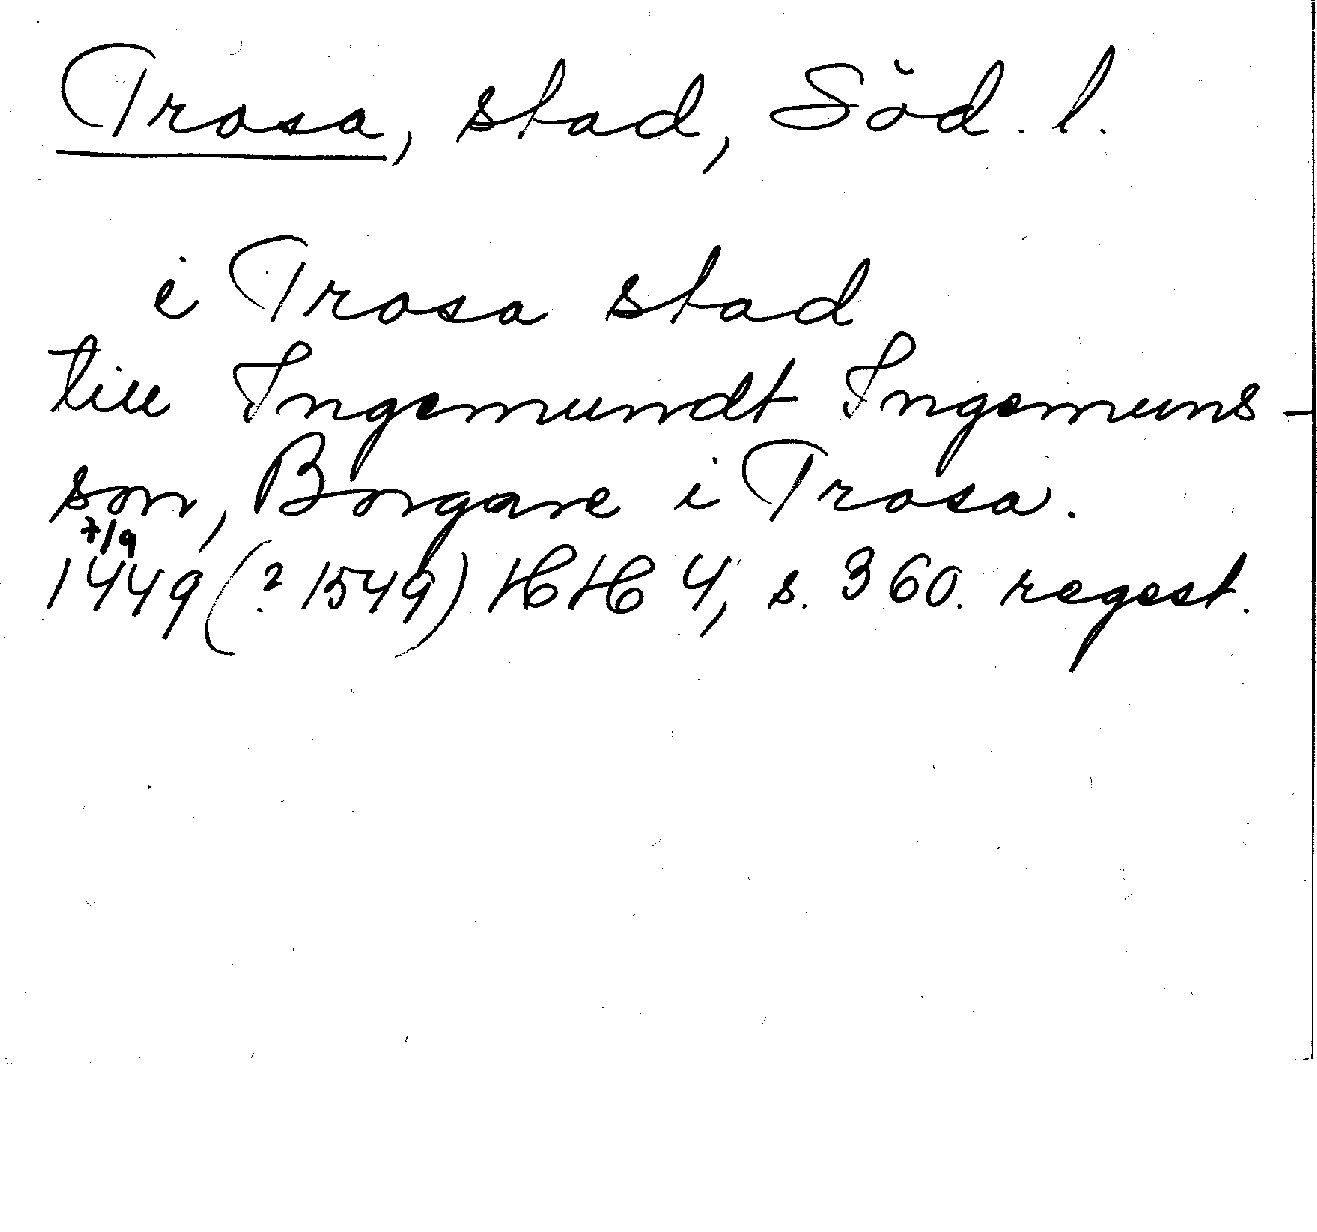 Trosa, stad, Söd. l.
i Trosa stad
till Ingemundt Ingemuns-
son, Borgare i Trosa.
7/9
1449 (? 1549) HH 4, s. 360. regest.